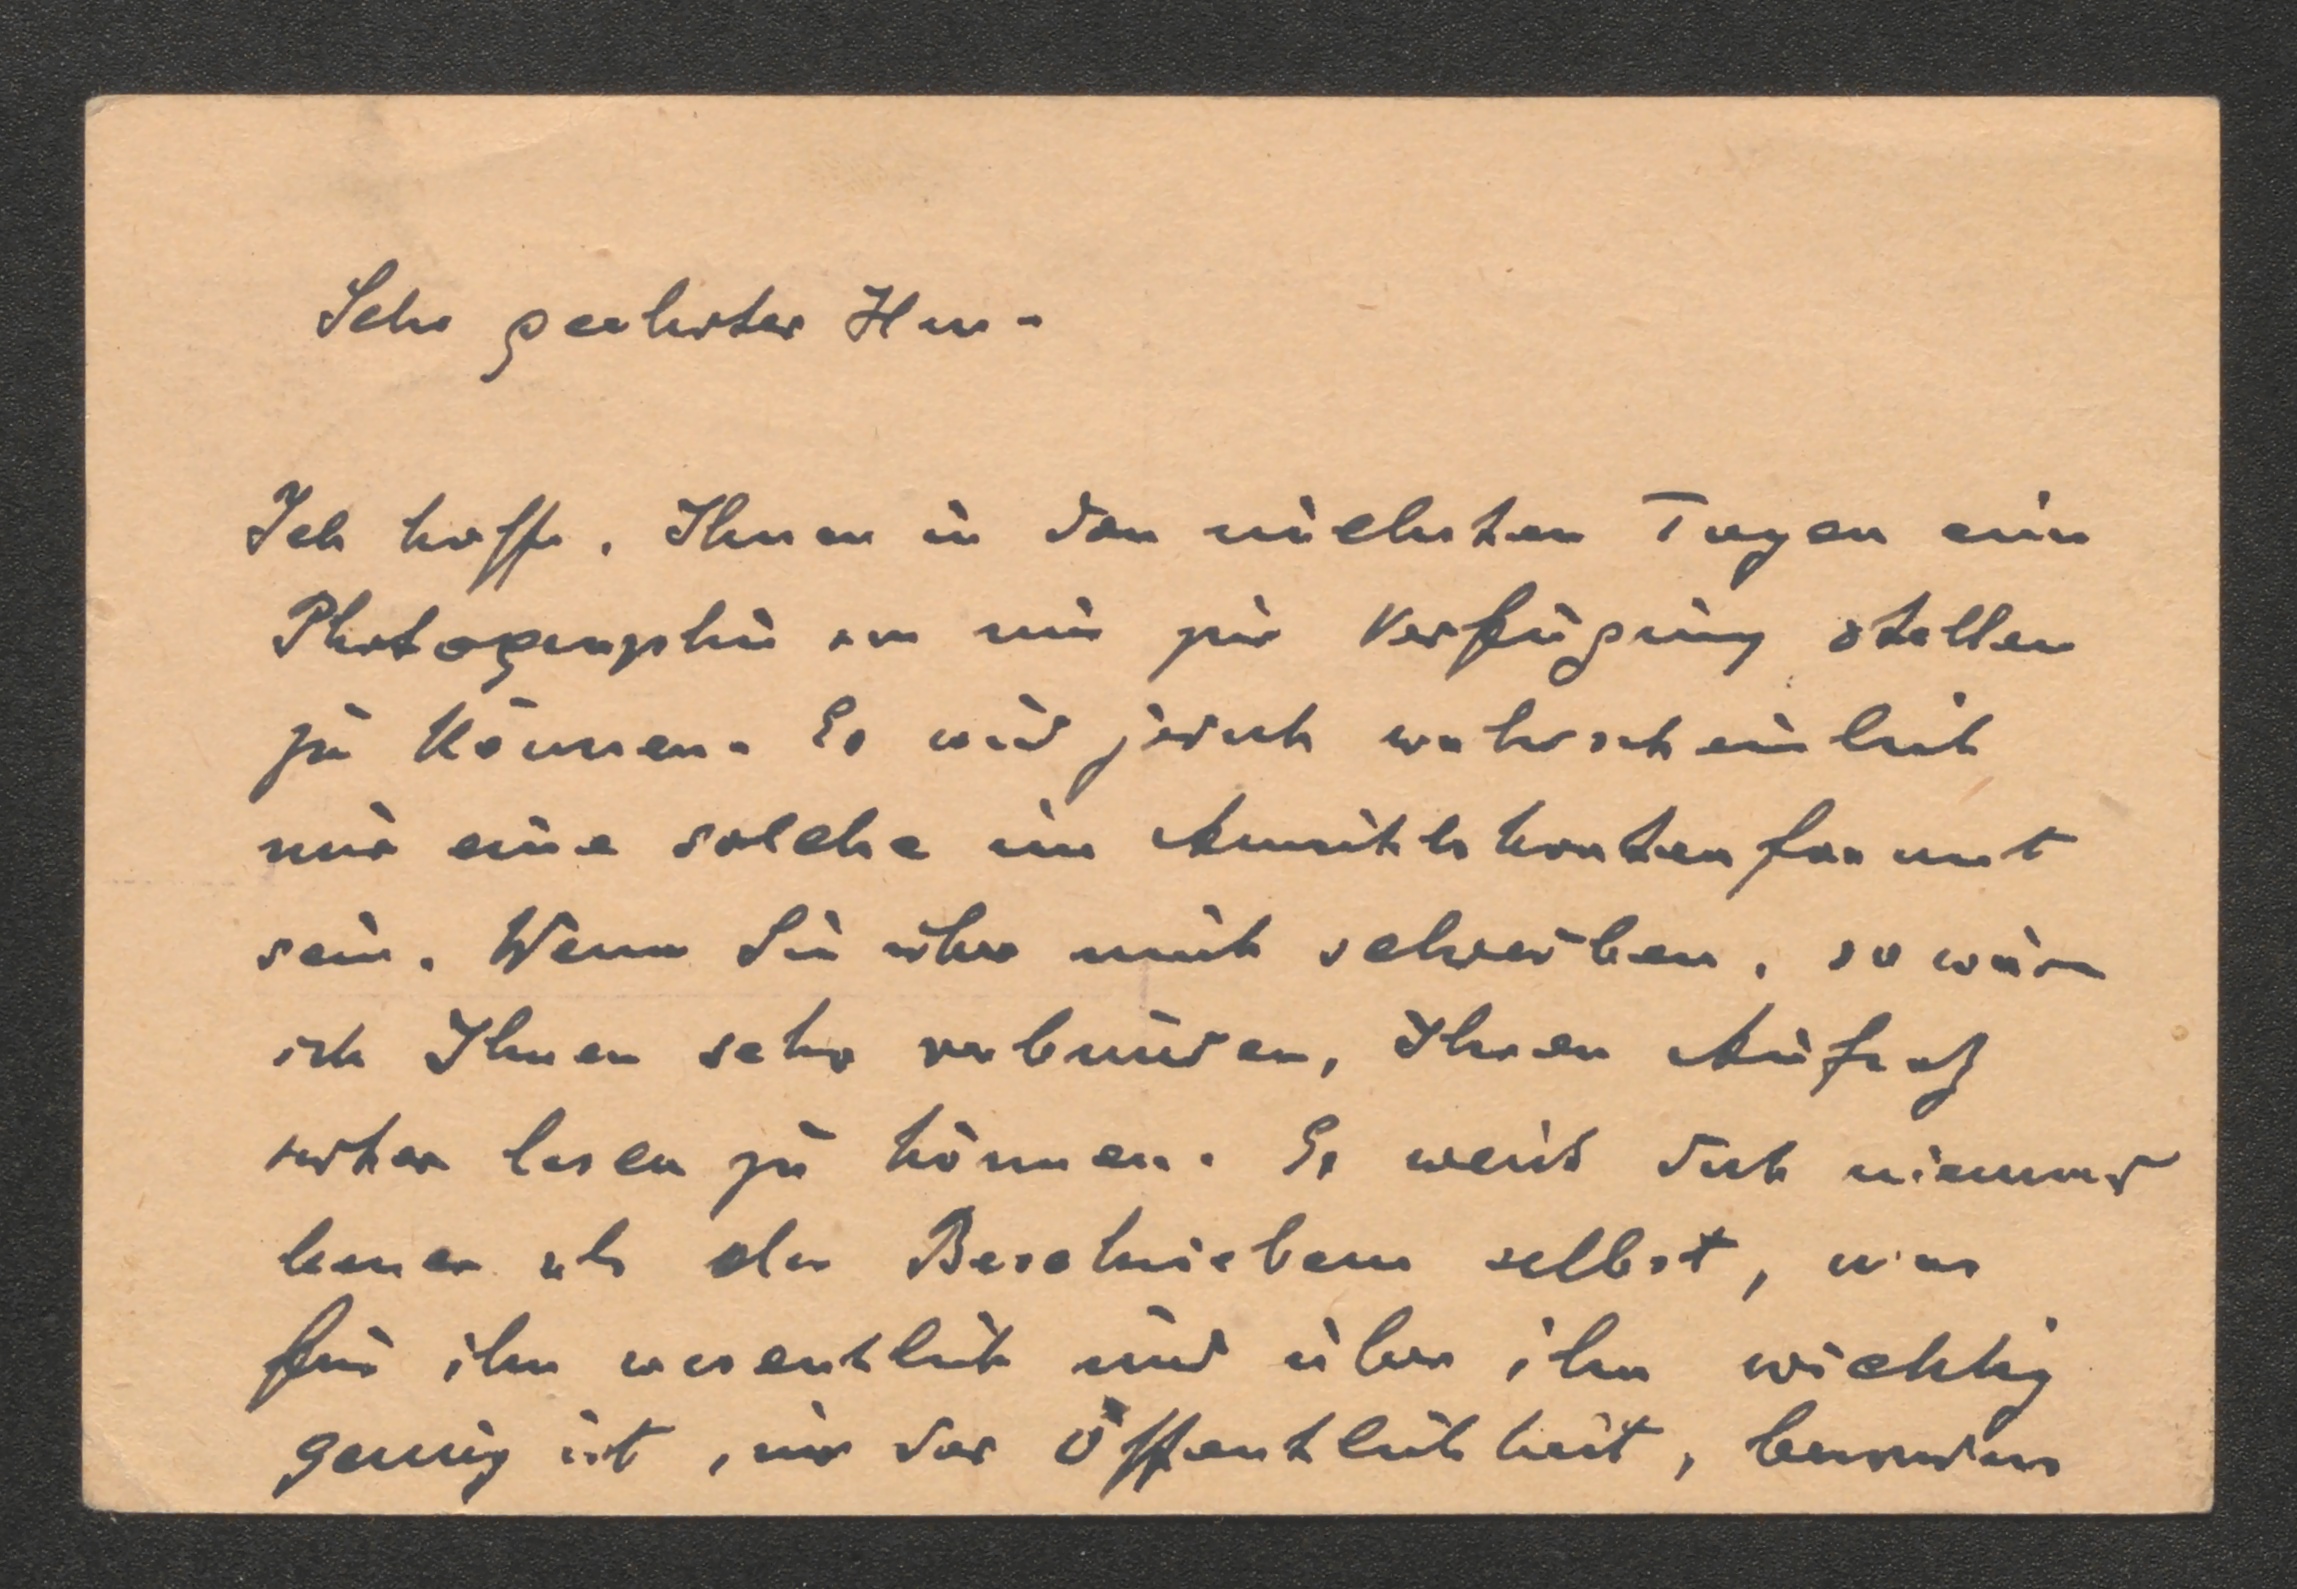 Sehr geehrter Herr.
Ich hoffe, Ihnen in den nächsten Tagen eine
Photographie von mir zur Verfügung stellen
zu können. Es wird jedoch wahrscheinlich
nur eine solche im Ansichtskartenformat
sein. Wenn Sie über mich schreiben, so wäre
ich Ihnen sehr verbunden, Ihren Aufsatz
vorher lesen zu können. Es weiß doch niemand
besser als der Beschriebene selbst, was
für ihn wesentlich und über ihn wichtig
genug ist, in der Öffentlichkeit, besonders